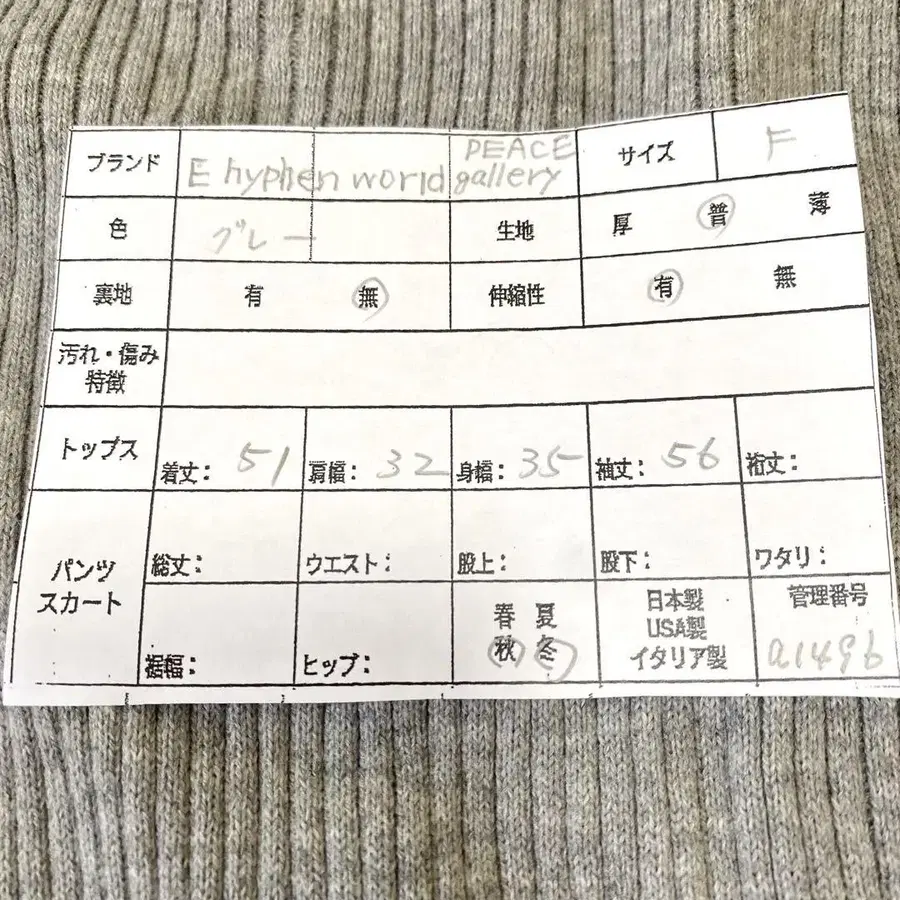 ブランド E hyphen world gallery PEACE サイズ F
色 グレー 生地 厚 普 薄
裏地 有 無 伸縮性 有 無
汚れ・傷み
特徴
トップス 着丈: 51 肩幅: 32 身幅: 35 袖丈: 56 裄丈:
パンツ
スカート
総丈: ウエスト: 股上: 股下: ワタリ:
裾幅: ヒップ:
春 夏
秋 冬
日本製
USA製
イタリア製
管理番号
a1496